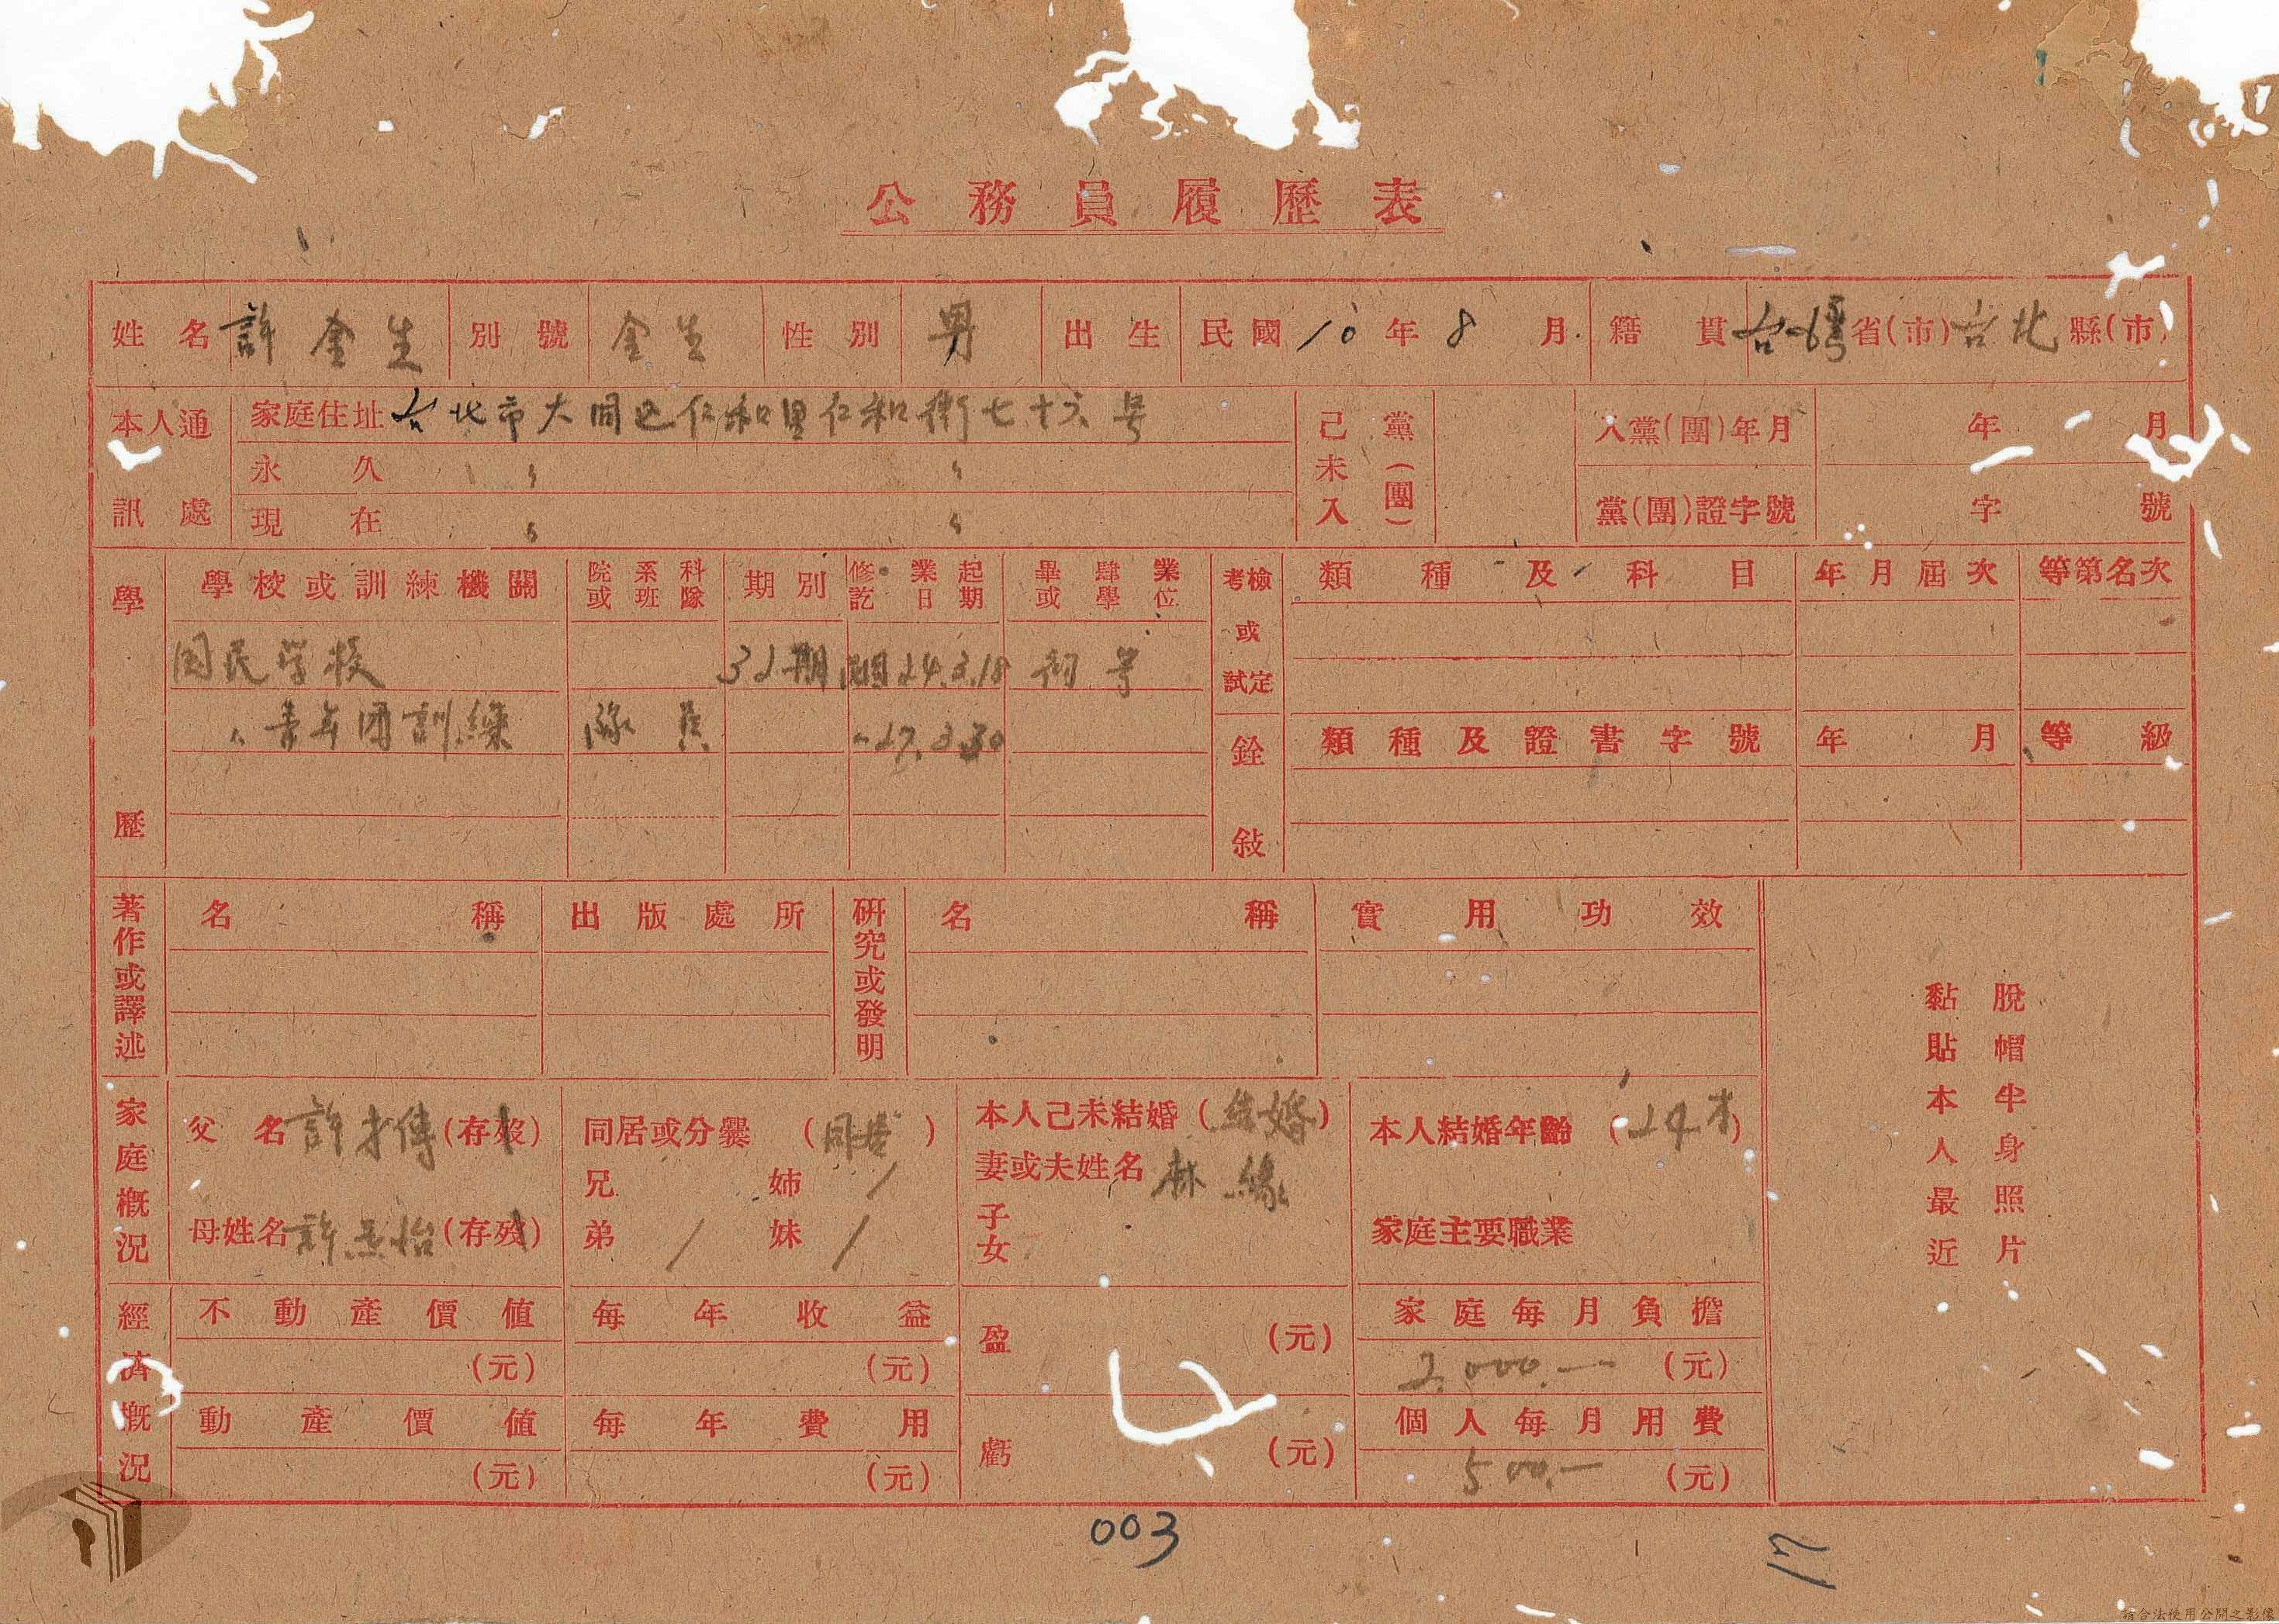 公務員履歷表
姓名 許金生 別號 金生 性別 男 出生 民國10年8月 籍貫 台灣省(市)台北縣(市)
本人通訊處 家庭住址 台北市大同區仁和里仁和街七十六号
永久 〃 〃
現在 〃 〃
己未入黨(團) 入黨(團)年月 年 月
黨(團)證字號 字 號
學歷 學校或訓練機關 院系科或班隊 期別 修業起訖日期 畢肄業或學位
国民学校 32期 昭24.3.18 初等
〃青年团訓練 隊員 〃27.3.30
考檢或試定 類種及科目 年月屆次 等第名次
銓敍 類種及證書字號 年月 等級
著作或譯述 名稱 出版處所 研究或發明 名稱 實用功效
家庭概況 父名 許才傳 (存歿) 同居或分爨 (同居) 本人己未結婚 (結婚) 本人結婚年齡 (24才)
兄 姉 / 妻或夫姓名 林緣
母姓名 (存歿) 弟 / 妹 / 子女 家庭主要職業
黏貼本人最近
脫帽半身照片
經濟概況 不動產價値 每年收益 盈 (元) 家庭每月負擔
(元) (元) 2,000.— (元)
動產價値 每年費用 虧 (元) 個人每月用費
(元) (元) 500.— (元)
003
17
請合法使用公開之影像